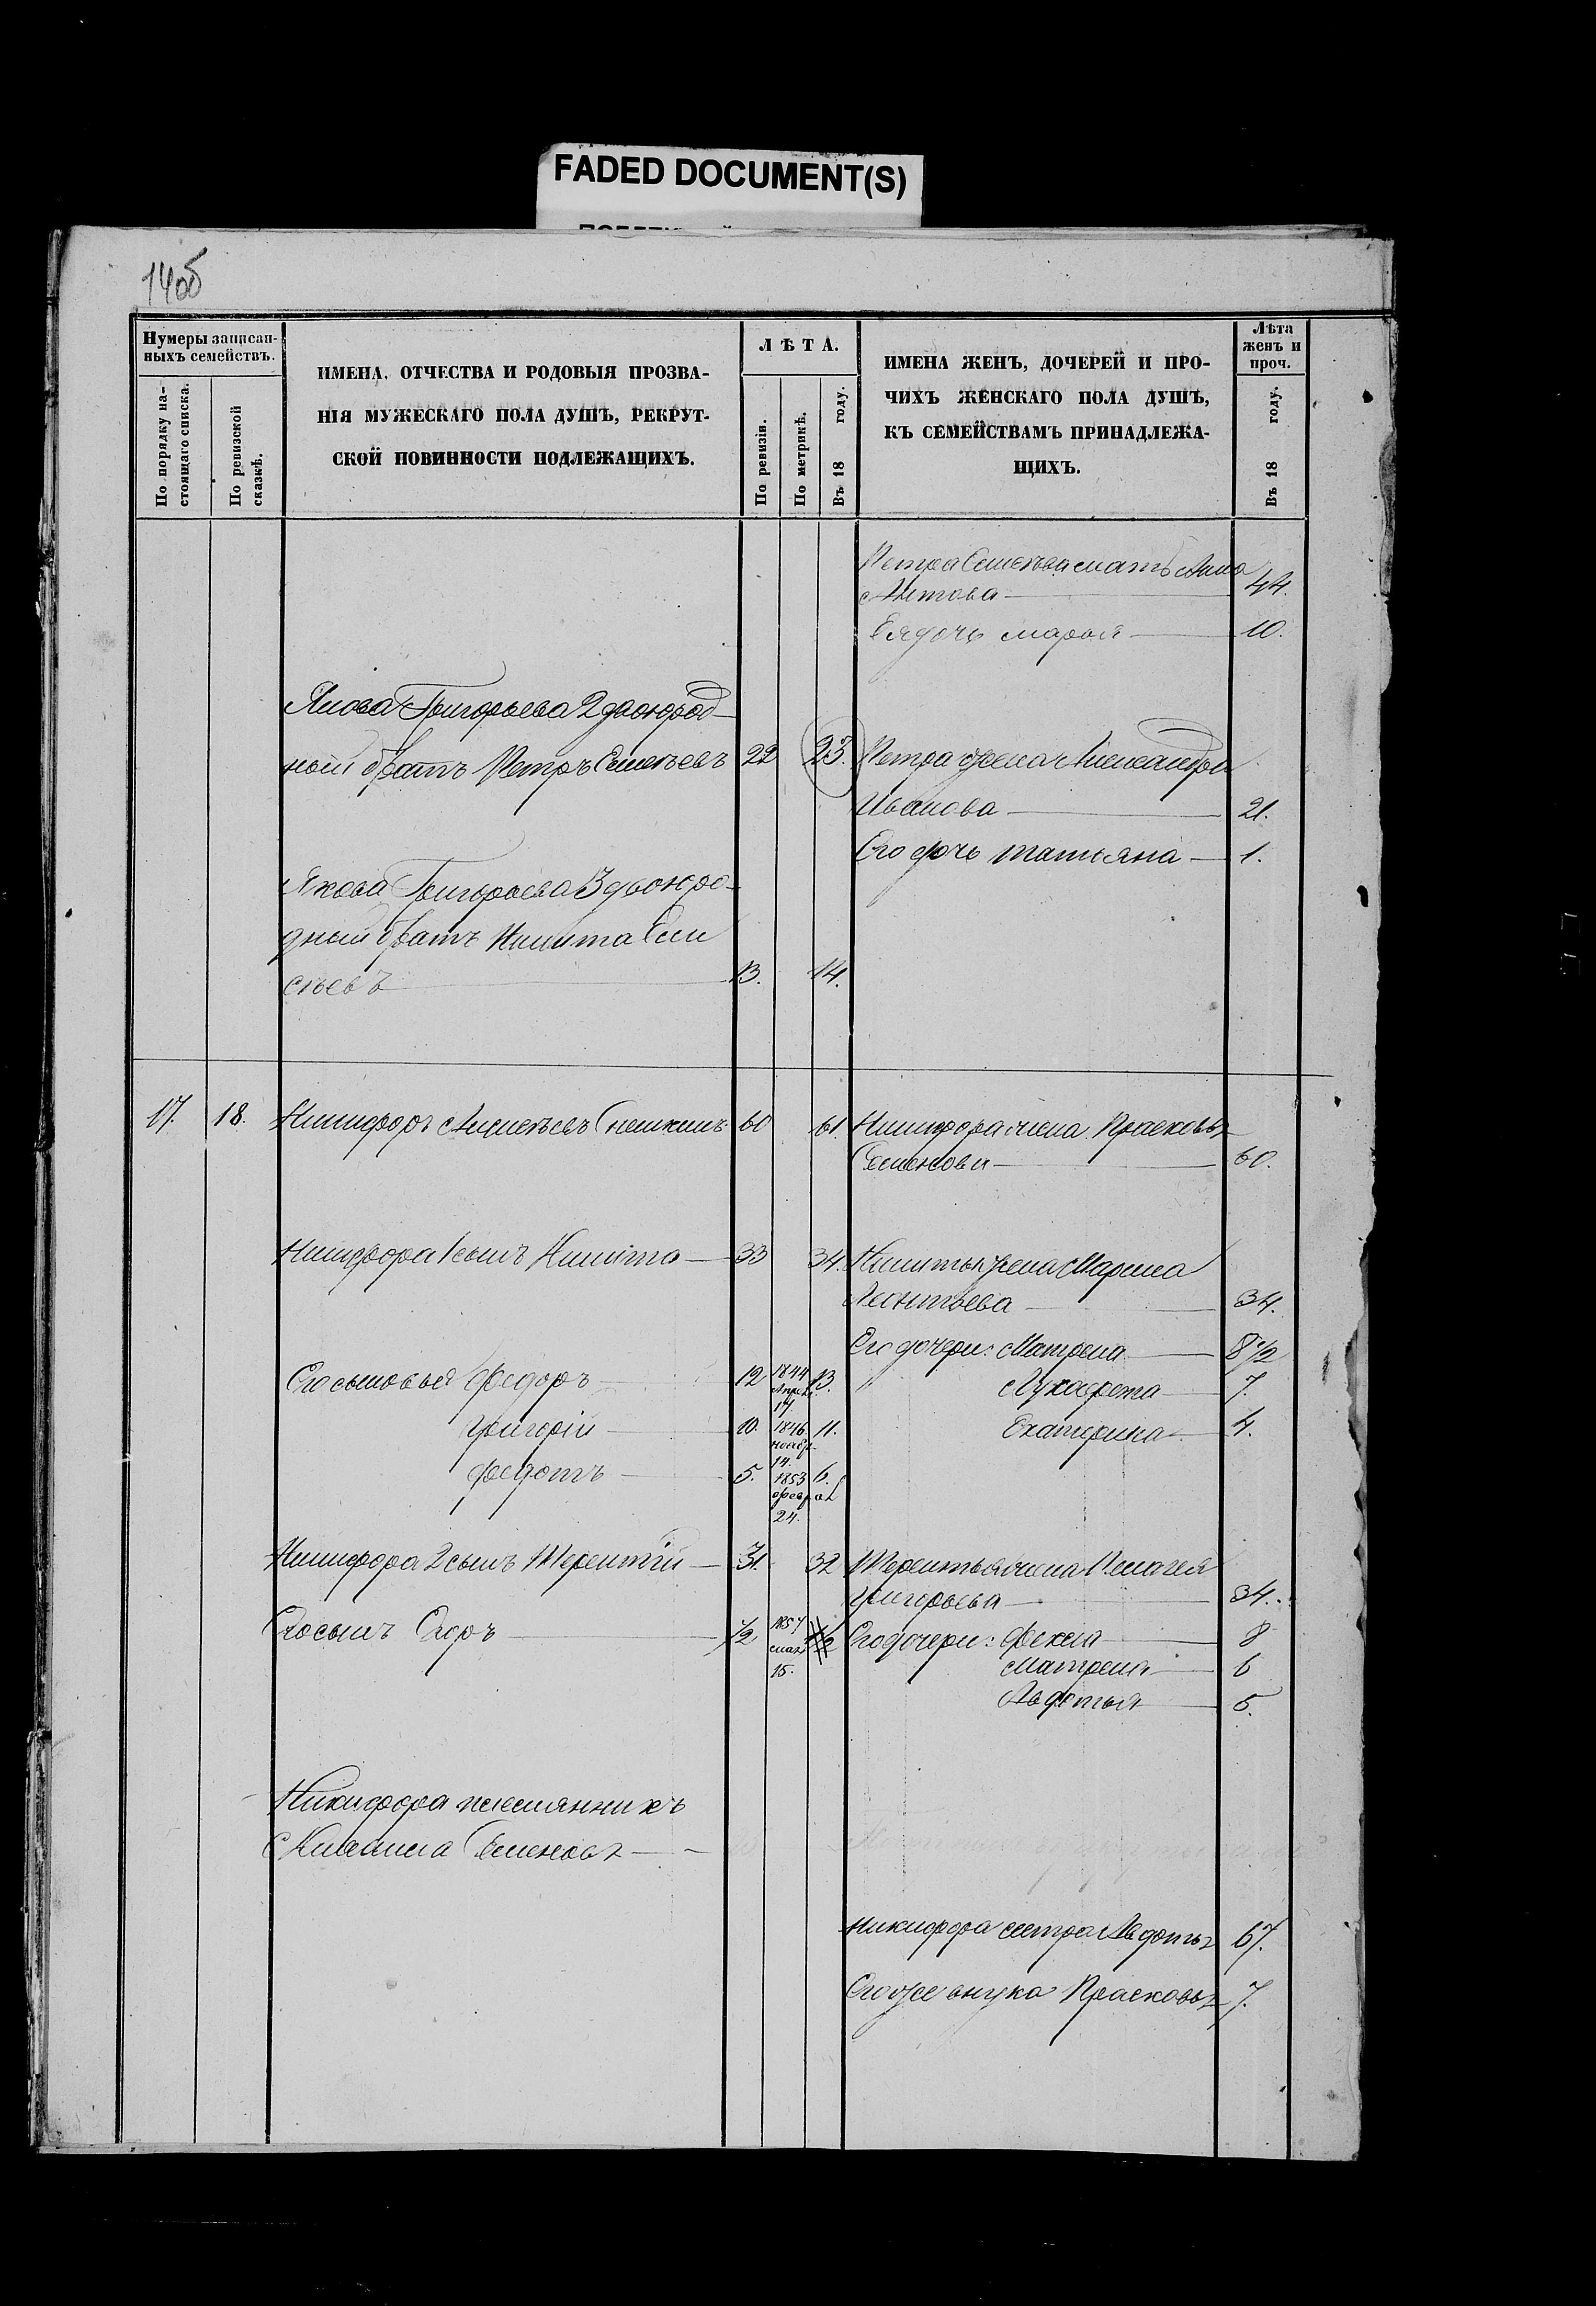 FADED DOCUMENT(S)
14об
Нумеры записан-
ныхъ семействъ.
По порядку на-
стоящаго списка.
По ревизской
сказкѣ.
ИМЕНА, ОТЧЕСТВА И РОДОВЫЯ ПРОЗВА-
НІЯ МУЖЕСКАГО ПОЛА ДУШЪ, РЕКРУТ-
СКОЙ ПОВИННОСТИ ПОДЛЕЖАЩИХЪ.
ЛѢТА.
По ревизіи.
По метрикѣ.
Въ 18 году.
ИМЕНА ЖЕНЪ, ДОЧЕРЕЙ И ПРО-
ЧИХЪ ЖЕНСКАГО ПОЛА ДУШЪ,
КЪ СЕМЕЙСТВАМЪ ПРИНАДЛЕЖА-
ЩИХЪ.
Лѣта
женъ и
проч.
Въ 18 году.
Петра мать Анна
44.
Ея дочь Марья 10.
Якова Григорьева 2 двоюрод-
ный братъ Петръ 22 23. Петра жена Александра
Иванова 21.
Его дочь Татьяна 1.
Якова Григорьева 3 двоюро-
дный братъ Никита Ели
сѣевъ 13. 14.
17. 18. Никифоръ 60 61. Никифора жена Прасковья
Семенова 60.
Никифора 1 сынъ Никита 33 34. Никиты жена Марина
Леонтьева 34.
Его дочери: Матрена 8 1/2
Его сыновья Федоръ 12 1844 Апрел. 17. 13. " 7.
Григорій 10. 1846. ноябр. 14. 11. Екатерина 4.
Федотъ 5. 1853 феврал 24. 6.
Никифора 2 сынъ Терентій 31. 32 Терентья жена Пелагея
Григорьева 34.
Его сынъ Егоръ 1/2 1857 мая 15. 1 1/2 Его дочери: Фекла 8
Матрена 6
Авдотья 5.
Никифора племянникъ
Семеновъ
Никифора сестра Авдотья 67.
Его же внука Прасковья 7.